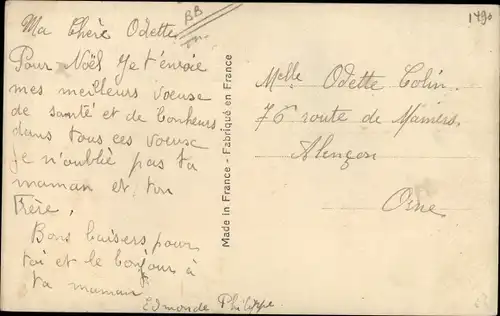 Ma Chère Odette
Pour Noël Je t'envoie
mes meilleurs voeuse
de santé et de bonheurs
dans tous ces voeuse
Je n'oublié pas ta
maman et ton
Frère.
Bons baisers pour
toi et le bonjour à
ta maman
Edmonde Philippe
BB
1490
Made in France - Fabriqué en France
Melle Odette Colin.
76 route de Mamers
Alençon
Orne